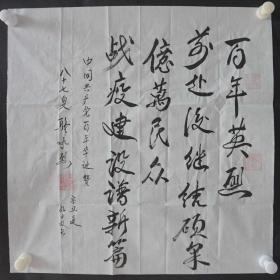 百年英烈
前赴後继结硕果
億萬民众
战疫建设谱新篇
中国共产党百年华诞贺
八十七叟